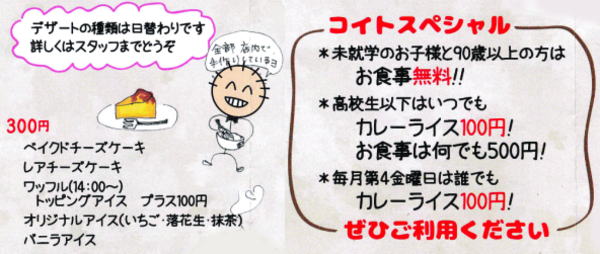 デザートの種類は日替わりです
詳しくはスタッフまでどうぞ
全部店内で
手作りしているヨ
300円
ベイクドチーズケーキ
レアチーズケーキ
ワッフル(14:00〜)
トッピングアイス プラス100円
オリジナルアイス(いちご・落花生・抹茶)
バニラアイス
コイトスペシャル
*未就学のお子様と90歳以上の方は
お食事無料!!
*高校生以下はいつでも
カレーライス100円!
お食事は何でも500円!
*毎月第4金曜日は誰でも
カレーライス100円!
ぜひご利用ください